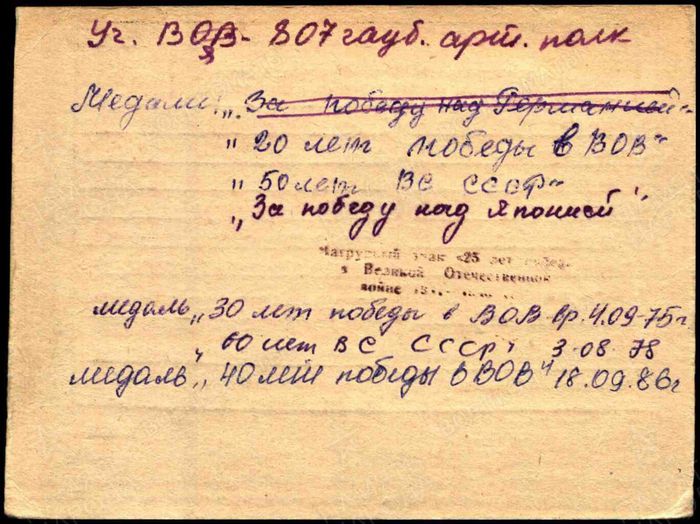 Уч. ВОВ - 807 гауб. арт. полк
Медали: „За победу над Германией"
„20 лет победы в ВОВ"
„50 лет ВС СССР"
„За победу над Японией"
Нагрудный знак «25 лет
в Великой Отечественной
войне
медаль „30 лет победы в ВОВ вр. 4.09-75г
„60 лет ВС СССР" 3-08-78
медаль „40 лет победы в ВОВ" 18.09.86г